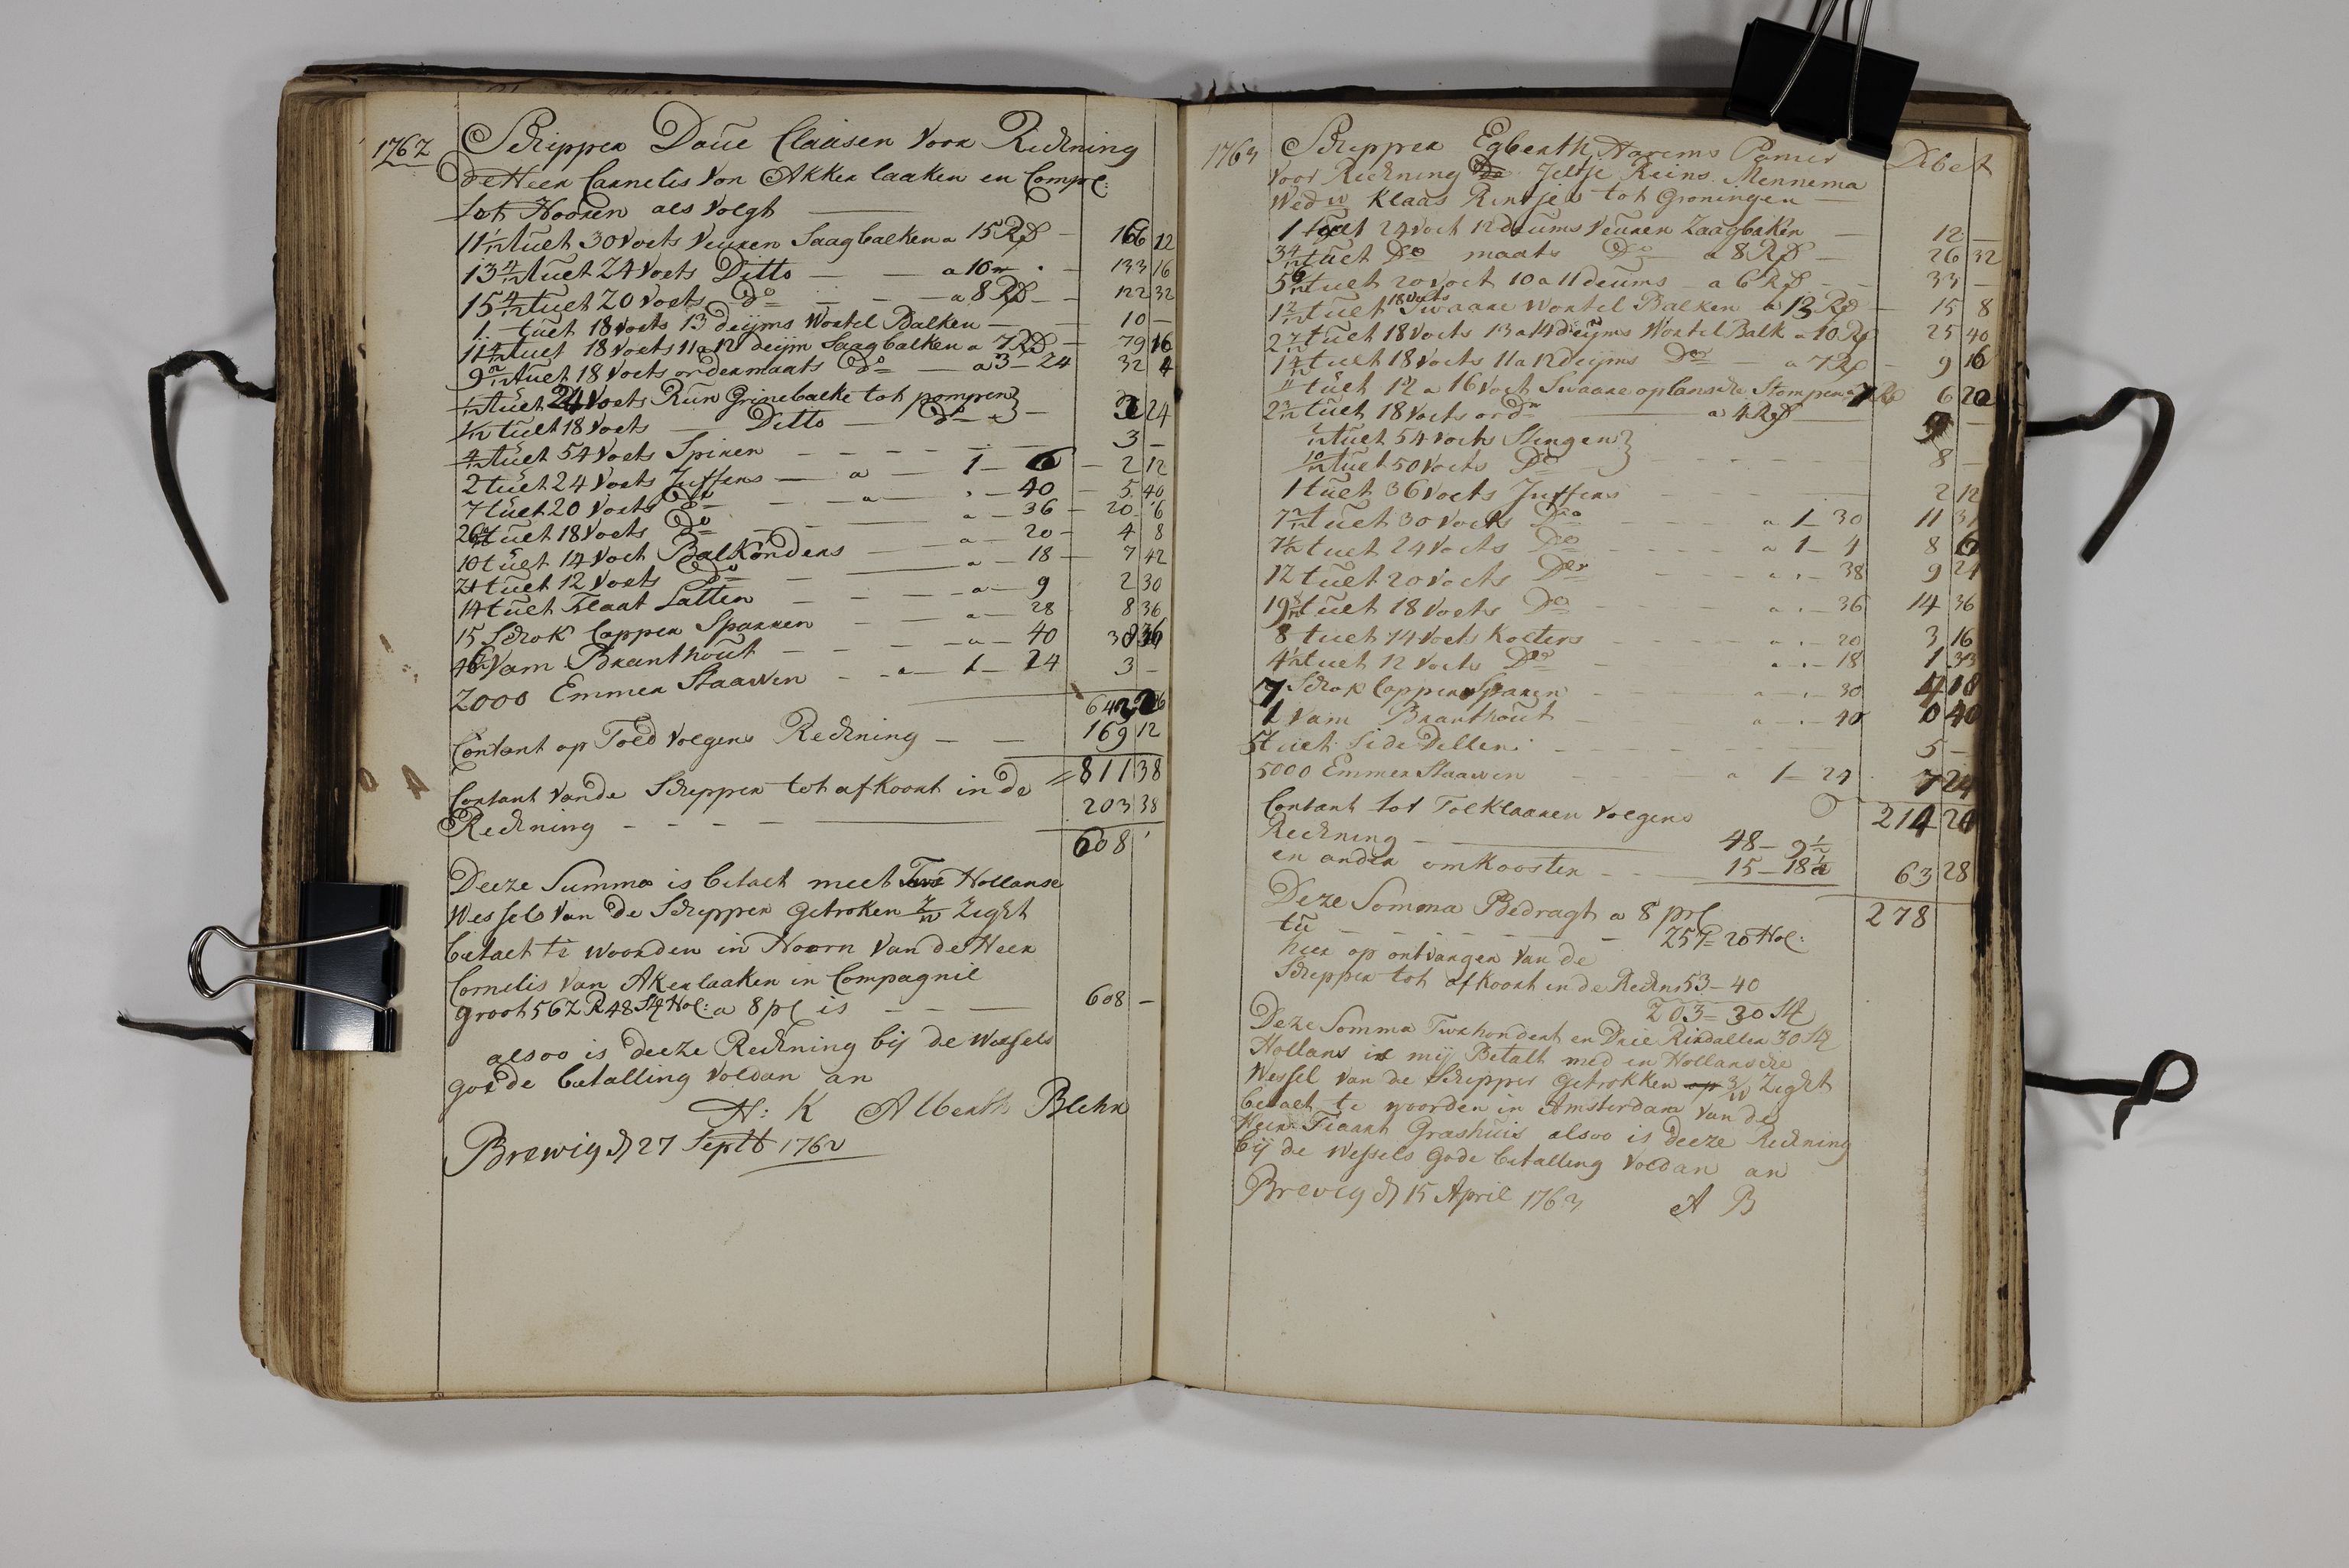 1762
Schipper Doüe Claasen Voor Reckning
de Heer Carnelis Von Akker laaken en Comp:
tot Hooren als Volgt
11 1/12 tüet 30 Voets Veuren Saagbalken a 15 Rd — 166 12
13 4/12 tüet 24 Voets Ditto — a 10 — 133 16
15 4/12 tüet 20 Voets do — a 8 Rd — 122 32
1 — tüet 18 Voets 13 deijms Wortel Balken — 10 —
11 4/12 tüet 18 Voets 11 a 12 deijm Saagbalken a 7 Rd — 79 16
9 2/12 tüet 18 Voets ordermaats do — a 3 — 24 32 4
1/12 tüet 24 Voets Rün Grinebalke tot pompen
1/12 tüet 18 Voets — Ditto — do — 3 24
4/12 tüet 54 Voets Spiren — 3 —
2 tüet 24 Voets Juffers — a 1 — 6 — 2 12
7 tüet 20 Voets do — a — 40 — 5 40
26 tüet 18 Voets do — a — 36 — 20 6
10 tüet 14 Voet Balkonders — a — 20 — 4 8
21 tüet 12 Voets do — a — 18 — 7 42
14 tüet Klaat Latten — a — 9 2 30
15 Schok Copper Sparren — a — 28 8 36
46 Vam Branthout — a — 40 30 36
2000 Emmer Staaven — a — 1 — 24 3 —
642 26
Contant op Toed Volgens Reckning — 169 12
= 811 38
Contant Van de Schipper tot afkoort in de
Reckning — 203 38
608
Deeze Summa is betaelt meet Hollanse
Wessels Van de Schipper Getroken Zeght
betaelt te woorden in Hoorn Van de Heer
Cornelis Van Akerlaaken in Compagnie
Groot 562 R 48 St Hol: a 8 pC is — 608 —
alsoo is deeze Reckning bij de Wessels
goede betalling Voldan an
N: K Alberth Blehr
Brewig d 27 Septb 1762
1763
Schipper Egberth Harems Pamer Debet
Voor Reckning Jeltje Reins Mennema
Wed w Klaas Rintjes tot Groningen —
1 tüet 24 Voet 12 deums Veuren Zaagbalken — 12 —
3 4/12 tüet Do maats Do a 8 Rd — 26 32
5 6/12 tüet 20 Voet 10 a 11 deums a 6 Rd — 33 —
1 2/12 tüet 18 Voets Swaare Wortel Balken a 13 Rd — 15 8
2 7/12 tüet 18 Voets 13 a 14 deijms Wortel Balk a 10 Rd 25 40
1 4/12 tüet 18 Voets 11 a 12 deijms Do a 7 Rd — 9 16
11/12 tüet 12 a 16 Voet Swaare Stompen a 7 Rd 6 20
2 3/12 tüet 18 Voets ord — a 4 Rd 9 —
tüet 54 Voets Stengen
10/12 tüet 50 Voets Do — 8 —
1 tüet 36 Voets Juffers — 2 12
7 2/12 tüet 30 Voets Do — a 1 — 30 11 31
7 1/2 tüet 24 Voets Do — a 1 — 4 8 6
12 tüet 20 Voets Do — a — 38 9 24
19 8/12 tüet 18 Voets Do — a — 36 14 36
8 tüet 14 Voets Kolters — a — 20 3 16
4 1/2 tüet 12 Voets Do — a — 18 1 33
7 Schok Copper Sparen — a — 30 4 18
1 Vam Branthout — a — 40 0 40
5 tüet Side Dellen — 5 —
5000 Emmer Staaven — a 1 — 24 7 24
Contant tot Tolklaaren Volgens 214 20
Reckning — 48 — 9 1/2
en ander omkoosten — 15 — 18 1/2 63 28
Deze Somma Bedragt a 8 prC 278
tü — 257 = 20 Hol:
hier op ontvangen Van de
Schipper tot afkoort in de Reckn 53 — 40
203 = 30 St
Deze Somma Twehondert en Drie Rixdaller 30 St
Hollans is mij Betalt med en Hollansche
Wessel Van de Schipper Getrokken Zeght
betaelt te woorden in Amsterdam Van de
Heer Tiaart Grashuis alsoo is deeze Reckning
bij de Wessels Gode betalling Voldan an
Brevig d 15 April 1763 A B